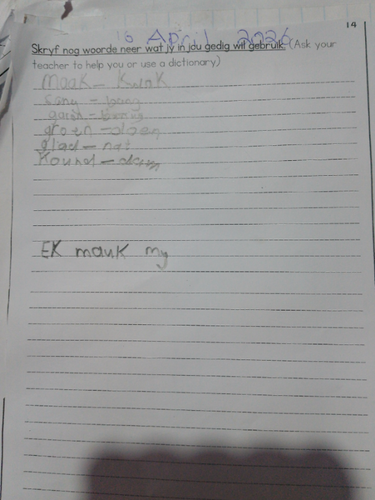 14
16 April 2026
Skryf nog woorde neer wat jy in jou gedig wil gebruik (Ask your
teacher to help you or use a dictionary)
maak - kwak
sang - bang
groen - doen
glad - nat
EK mauk my